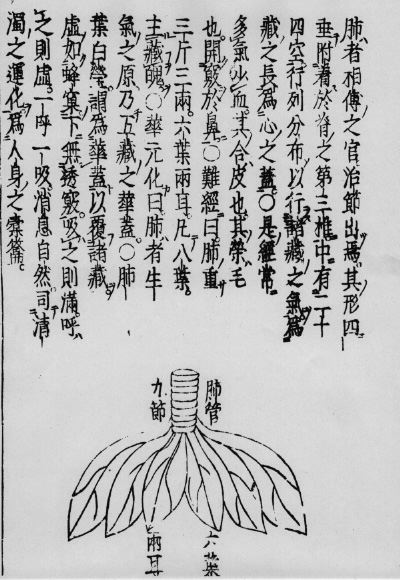 肺者相傳之官治節出焉其形四
垂附着於脊之第三椎中有二十
四空行列分布以行諸藏之氣爲
藏之長爲心之蓋○是經常
多氣少血其合皮也其榮毛
也開竅於鼻○難經曰肺重
三斤三兩六葉兩耳凡八葉
主藏魄○華元化曰肺者生
氣之原乃五藏之華蓋○肺
葉白瑩謂爲華蓋以覆諸藏
虛如蜂窠下無透竅吸之則滿呼
之則虛一呼一吸消息自然司清
濁之運化爲人身之橐籥
肺管
九節
六葉
兩耳